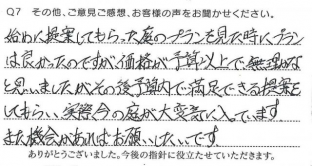 Q7 その他、ご意見ご感想、お客様の声をお聞かせください。
始めに提案してもらった庭のプランを見た時にプラン
は良かったのですが価格が予算以上で無理かな
と思いましたがその後予算内で満足できる提案を
してもらい、実際今の庭が大変気に入っています。
また機会があればお願いしたいです。
ありがとうございました。今後の指針に役立たせていただきます。